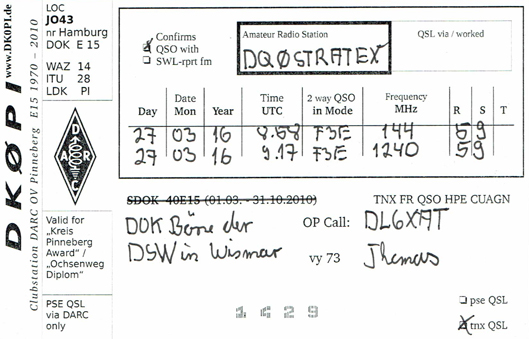 DKØPI www.DK0PI.de
Clubstation DARC OV Pinneberg E15 1970 – 2010
LOC
JO43
nr Hamburg
DOK E 15
WAZ 14
ITU 28
LDK PI
D
A R
C
Valid for
„Kreis
Pinneberg
Award“ /
„Ochsenweg
Diplom“
PSE QSL
via DARC
only
Confirms
QSO with
SWL-rprt fm
Amateur Radio Station
DQØSTRATEX
QSL via / worked
Day Date Mon Year Time UTC 2 way QSO in Mode Frequency MHz R S T
27 03 16 8.58 F3E 144 59
27 03 16 9.17 F3E 1240 59
SDOK 40E15 (01.03. - 31.10.2010)
TNX FR QSO HPE CUAGN
DOK Börse der
DSW in Wismar
OP Call: DL6XAT
vy 73 Thomas
1429
pse QSL
tnx QSL